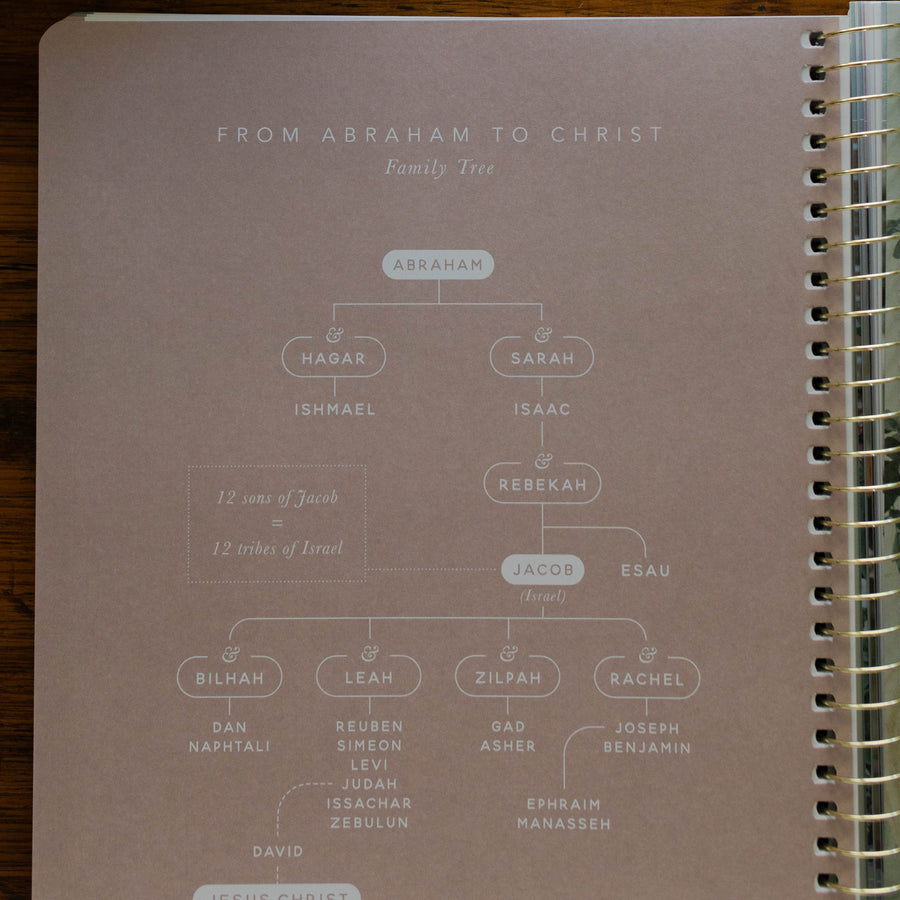 FROM ABRAHAM TO CHRIST
Family Tree
ABRAHAM
& &
HAGAR SARAH
ISHMAEL ISAAC
&
REBEKAH
12 sons of Jacob
=
12 tribes of Israel
JACOB ESAU
(Israel)
& & & &
BILHAH LEAH ZILPAH RACHEL
DAN REUBEN GAD JOSEPH
NAPHTALI SIMEON ASHER BENJAMIN
LEVI
JUDAH
ISSACHAR EPHRAIM
ZEBULUN MANASSEH
DAVID
JESUS CHRIST